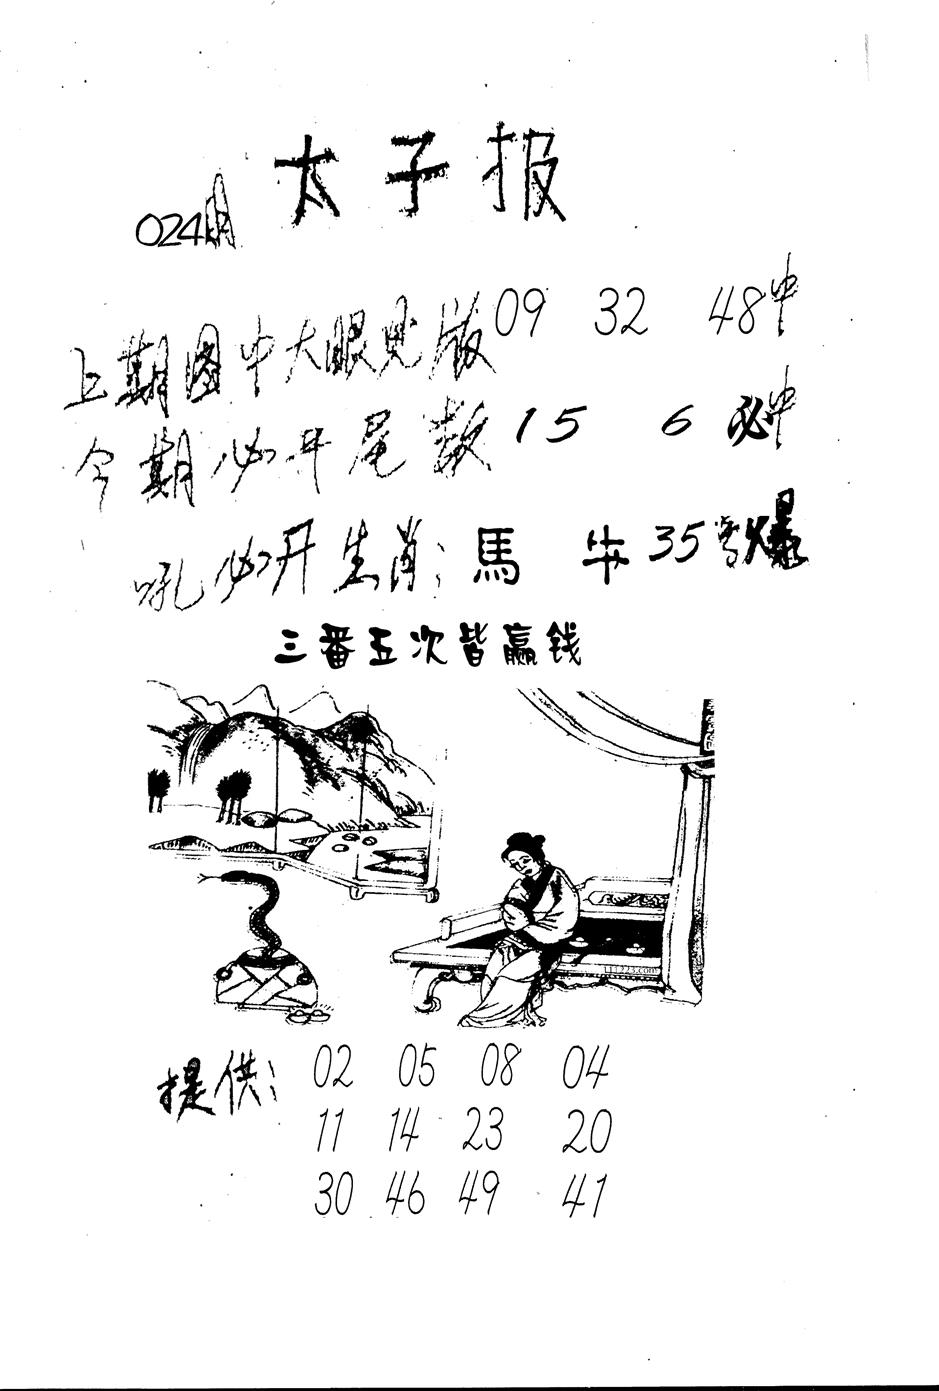 太子报
024期
上期图中大眼见版09 32 48中
今期必开尾数15 6必中
吼必开生肖：馬 牛35号爆
三番五次皆赢钱
提供：02 05 08 04
11 14 23 20
30 46 49 41